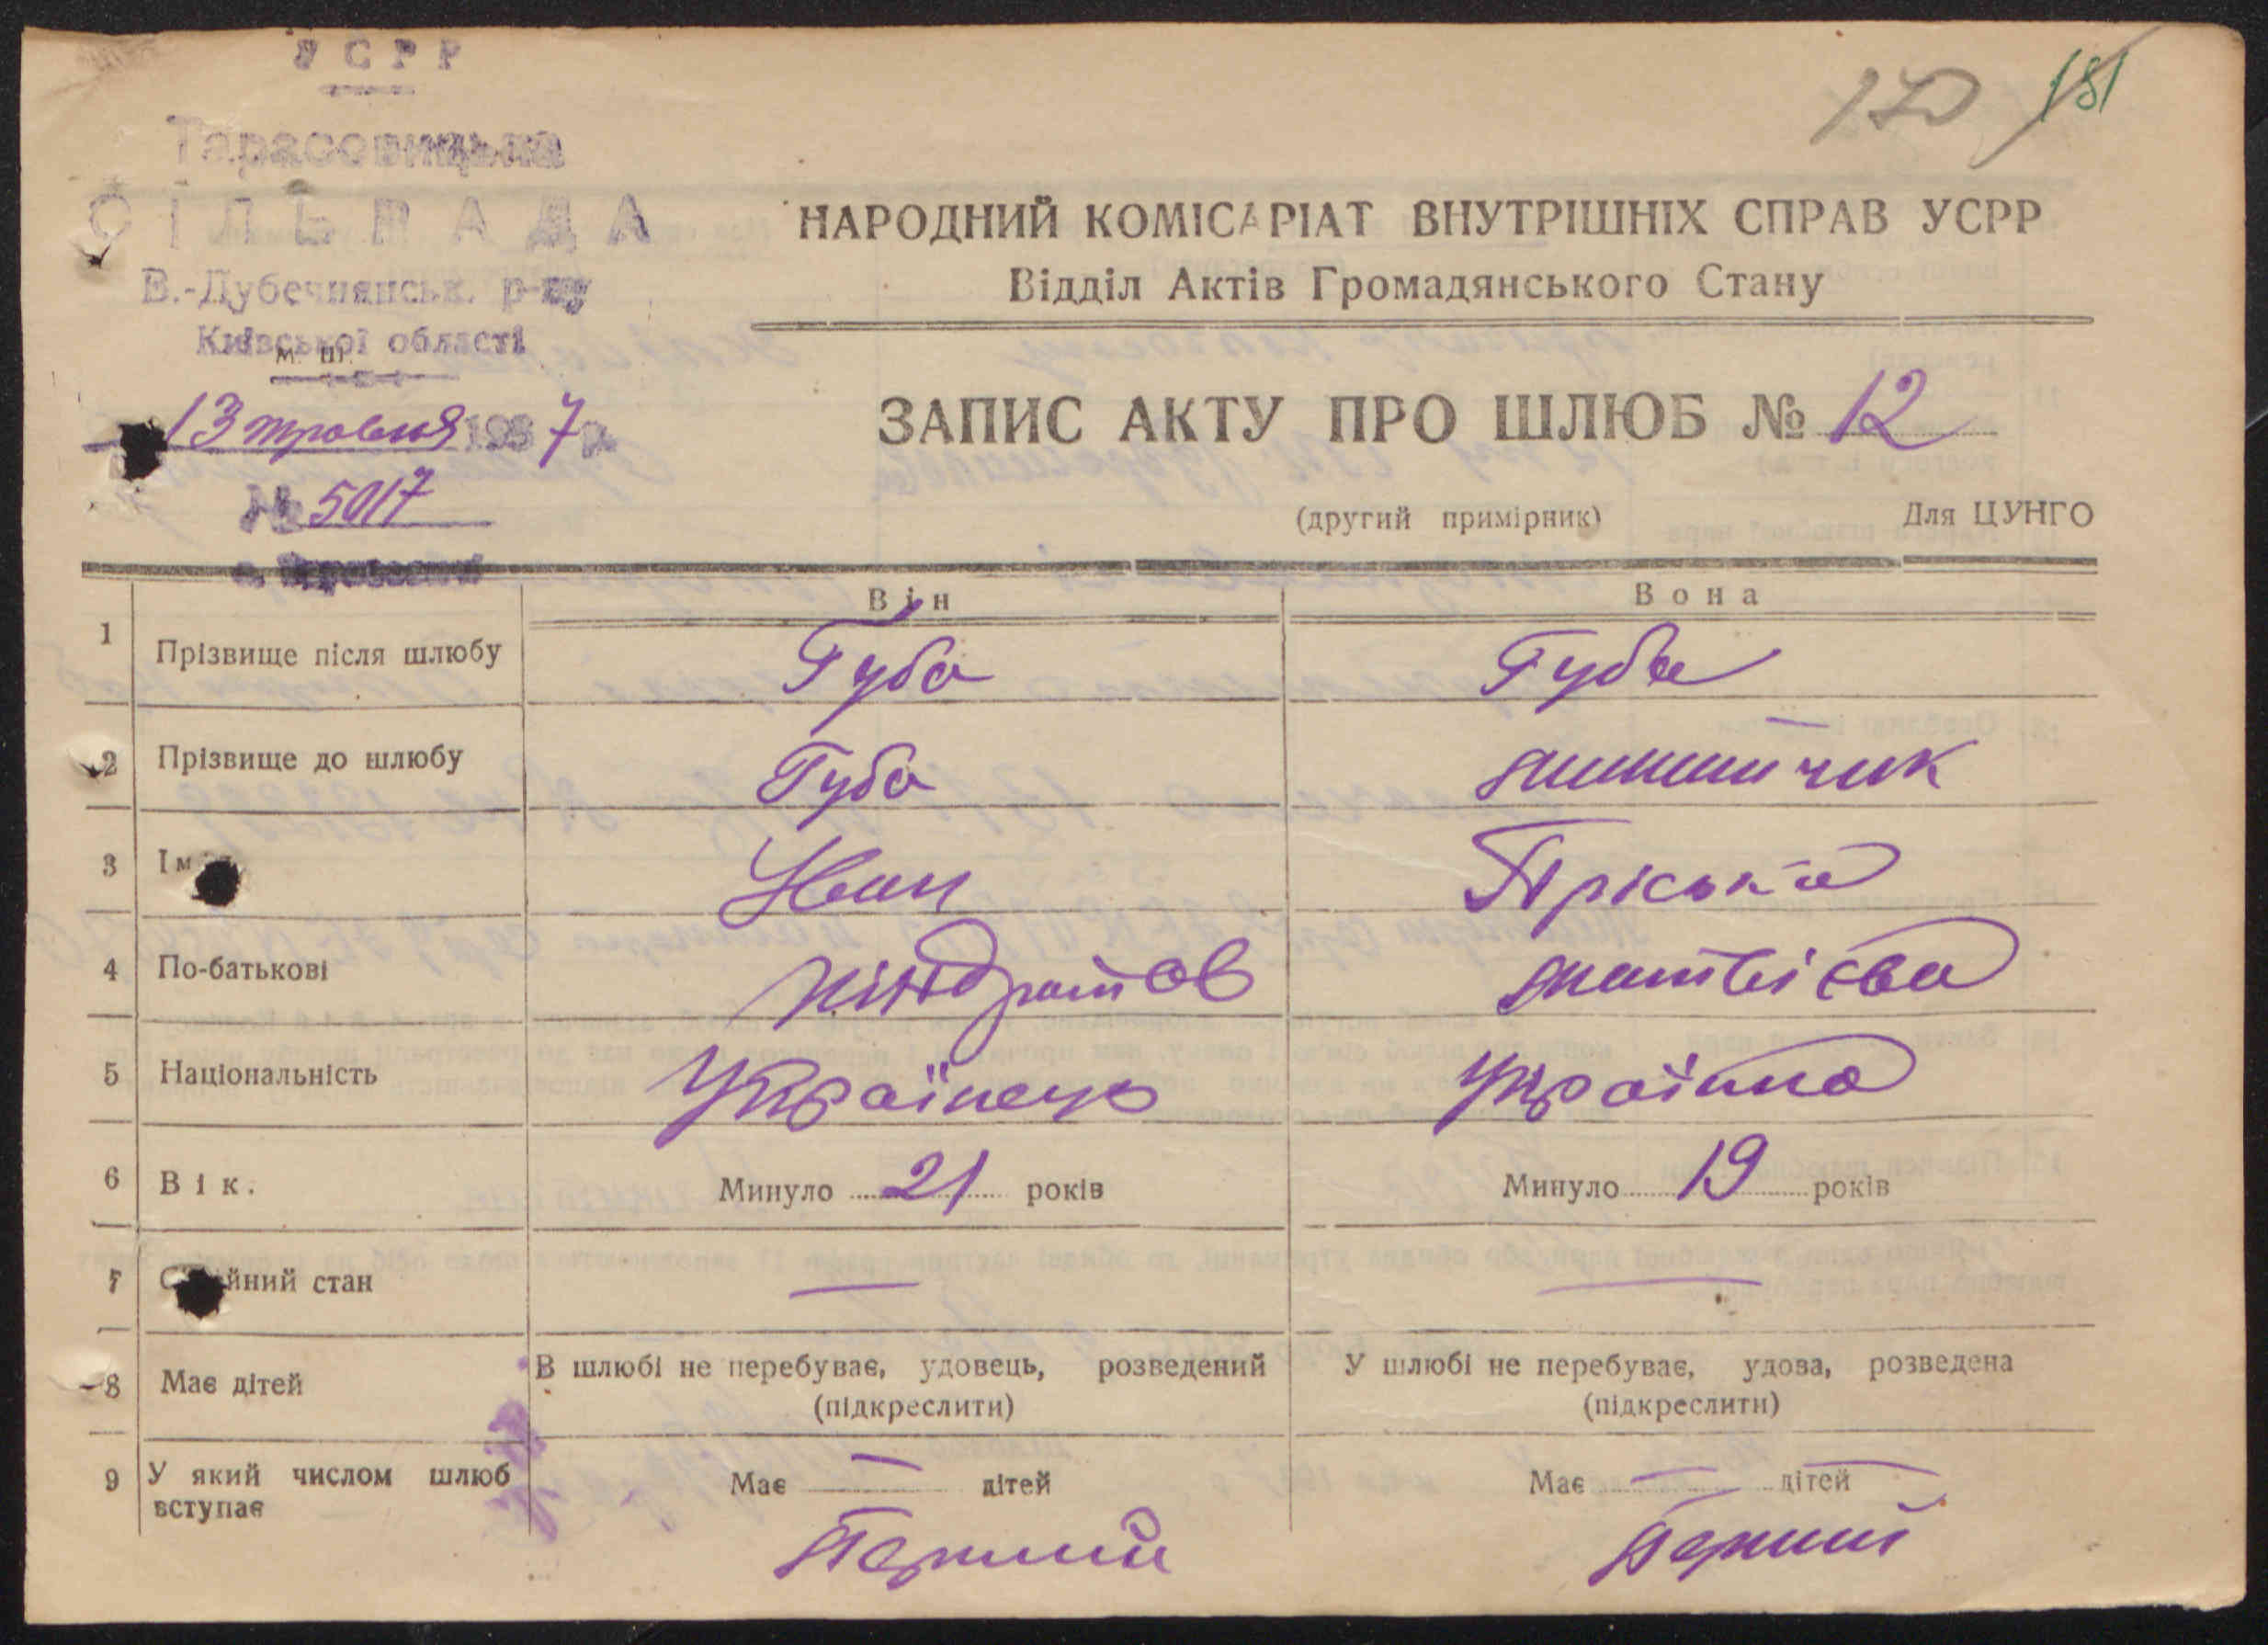 УСРР
170 181
Тарасовицька
СІЛЬРАДА
В.-Дубечнянськ. р-ну
Київської області
м. ш.
13 травня 1937 р.
№ 5017
НАРОДНИЙ КОМІСАРІАТ ВНУТРІШНІХ СПРАВ УСРР
Відділ Актів Громадянського Стану
ЗАПИС АКТУ ПРО ШЛЮБ № 12
(другий примірник) Для ЦУНГО
Він Вона
1 Прізвище після шлюбу Губа Губа
2 Прізвище до шлюбу Губа
3 Ім Иван Пріська
4 По-батькові Кіндратов Матвієва
5 Національність Українець Українка
6 Вік. Минуло 21 років Минуло 19 років
7 С йний стан — —
8 Має дітей В шлюбі не перебуває, удовець, розведений У шлюбі не перебуває, удова, розведена
(підкреслити) (підкреслити)
9 У який числом шлюб Має — дітей Має — дітей
вступає
Перший Перший